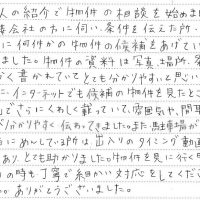 人の紹介で物件の相談を始めま
会社の方に伺い、条件を伝えた所、
に何件かの物件の候補をあげてい
ました。物件の資料は写真、場所、
く書かれていてとても分かりやすいと思い
に、インターネットでも候補の物件を見たとこ
でさらにくわしく載っていて、雰囲気や、間取
が分かりやすく伝わってきました。また、駐車場が
にめんしている所は、出入りのタイミング動画
あり、とても助かりました。物件を見に行く
の時も丁寧で細かい対応をしてくだ
。ありがとうございました。